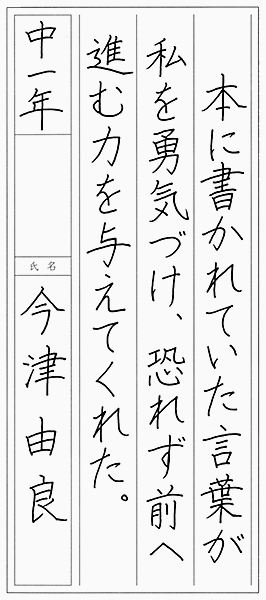 本に書かれていた言葉が
私を勇気づけ、恐れず前へ
進む力を与えてくれた。
中一年
氏名
今津由良